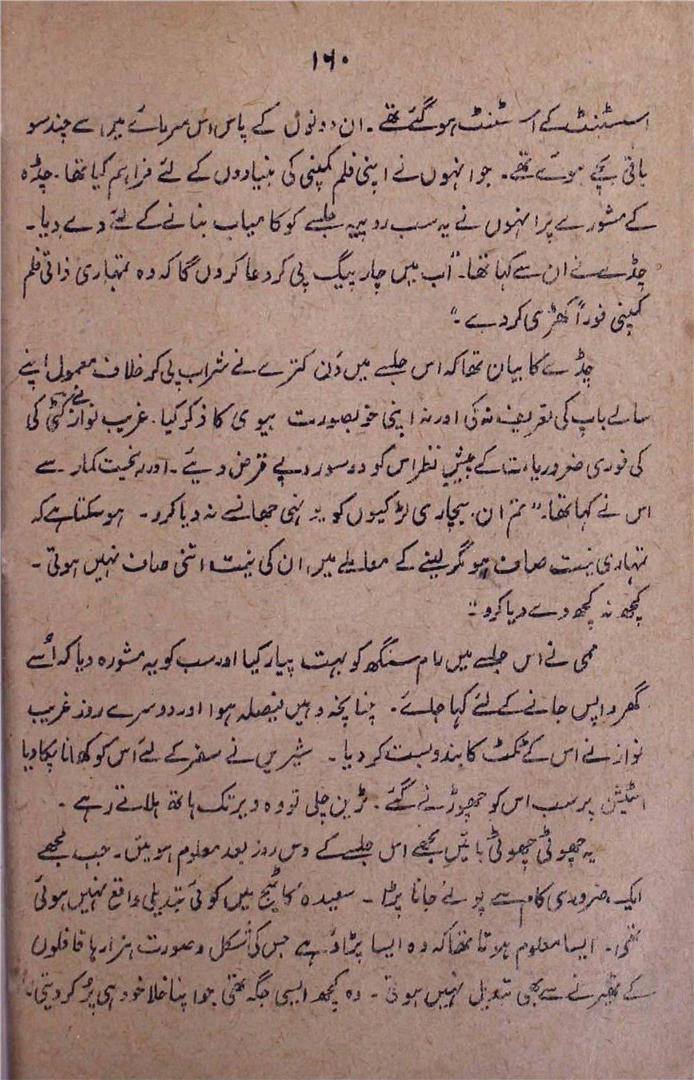 ۱۶۰
اسسٹنٹ کے اسسٹنٹ ہو گئے تھے۔ ان دونوں کے پاس اس سرمائے میں سے چند سو
باقی بچے ہوئے تھے۔ جو انہوں نے اپنی فلم کمپنی کی بنیادوں کے لئے فراہم کیا تھا۔ چڈہ
کے مشورے پر انہوں نے یہ سب روپیہ جلسے کو کامیاب بنانے کے لئے دے دیا۔
چڈے نے ان سے کہا تھا۔ "اب میں چار پیگ پی کر دعا کروں گا کہ وہ تمہاری ذاتی فلم
کمپنی فوراً کھڑی کر دے۔"
چڈے کا بیان تھا کہ اس جلسے میں ون کترے نے شراب پی کر خلاف معمول اپنے
سالے باپ کی تعریف نہ کی اور نہ اپنی خوبصورت بیوی کا ذکر کیا۔ غریب نواز نے کٹی کی
کی فوری ضروریات کے پیش نظر اس کو دو سو روپے قرض دیئے۔ اور رنجیت کمار سے
اس نے کہا تھا۔ "تم ان بیچاری لڑکیوں کو یونہی جھانسے نہ دیا کرو۔ ہو سکتا ہے کہ
تمہاری نیت صاف ہو مگر لینے کے معاملے میں ان کی نیت اتنی صاف نہیں ہوتی۔
کچھ نہ کچھ دے دیا کرو۔"
ممی نے اس جلسے میں رام سنگھ کو بہت پیار کیا اور سب کو یہ مشورہ دیا کہ اُسے
گھر واپس جانے کے لئے کہا جائے۔ چنانچہ وہیں فیصلہ ہوا اور دوسرے روز غریب
نواز نے اس کے ٹکٹ کا بندوبست کر دیا۔ شیریں نے سفر کے لئے اس کو کھانا پکا دیا
اسٹیشن پر سب اس کو چھوڑنے گئے۔ ٹرین چلی تو وہ دیر تک ہاتھ ہلاتے رہے۔
یہ چھوٹی چھوٹی باتیں مجھے اس جلسے کے دس روز بعد معلوم ہوئیں۔ جب مجھے
ایک ضروری کام سے پونے جانا پڑا۔ سعیدہ کاٹیج میں کوئی تبدیلی واقع نہیں ہوئی
تھی۔ ایسا معلوم ہوتا تھا کہ وہ ایسا پڑاؤ ہے جس کی شکل و صورت ہزارہا قافلوں
کے ٹھہرنے سے بھی تبدیل نہیں ہوتی۔ وہ کچھ ایسی جگہ تھی جو اپنا خلا خود ہی پُر کر دیتی